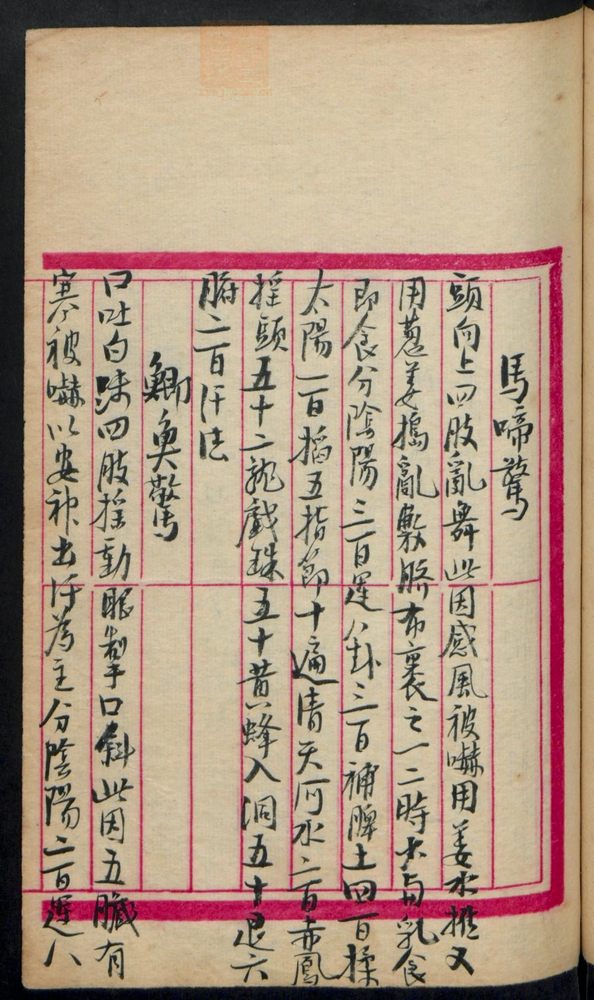 馬啼驚
頭向上四肢亂舞此因感風被嚇用姜水推又
用蔥姜搗亂敷臍布裹之一二時不与乳食
即食分陰陽三百運八卦三百補脾土四百揉
太陽一百掐五指節十遍清天河水二百赤鳳
摇頭五十二龍戲珠五十黄蜂入洞五十退六
腑二百汗法
鯽魚驚
口吐白沫四肢摇動眼掣口斜此因五臓有
寒被嚇以安神出汗為主分陰陽二百運八